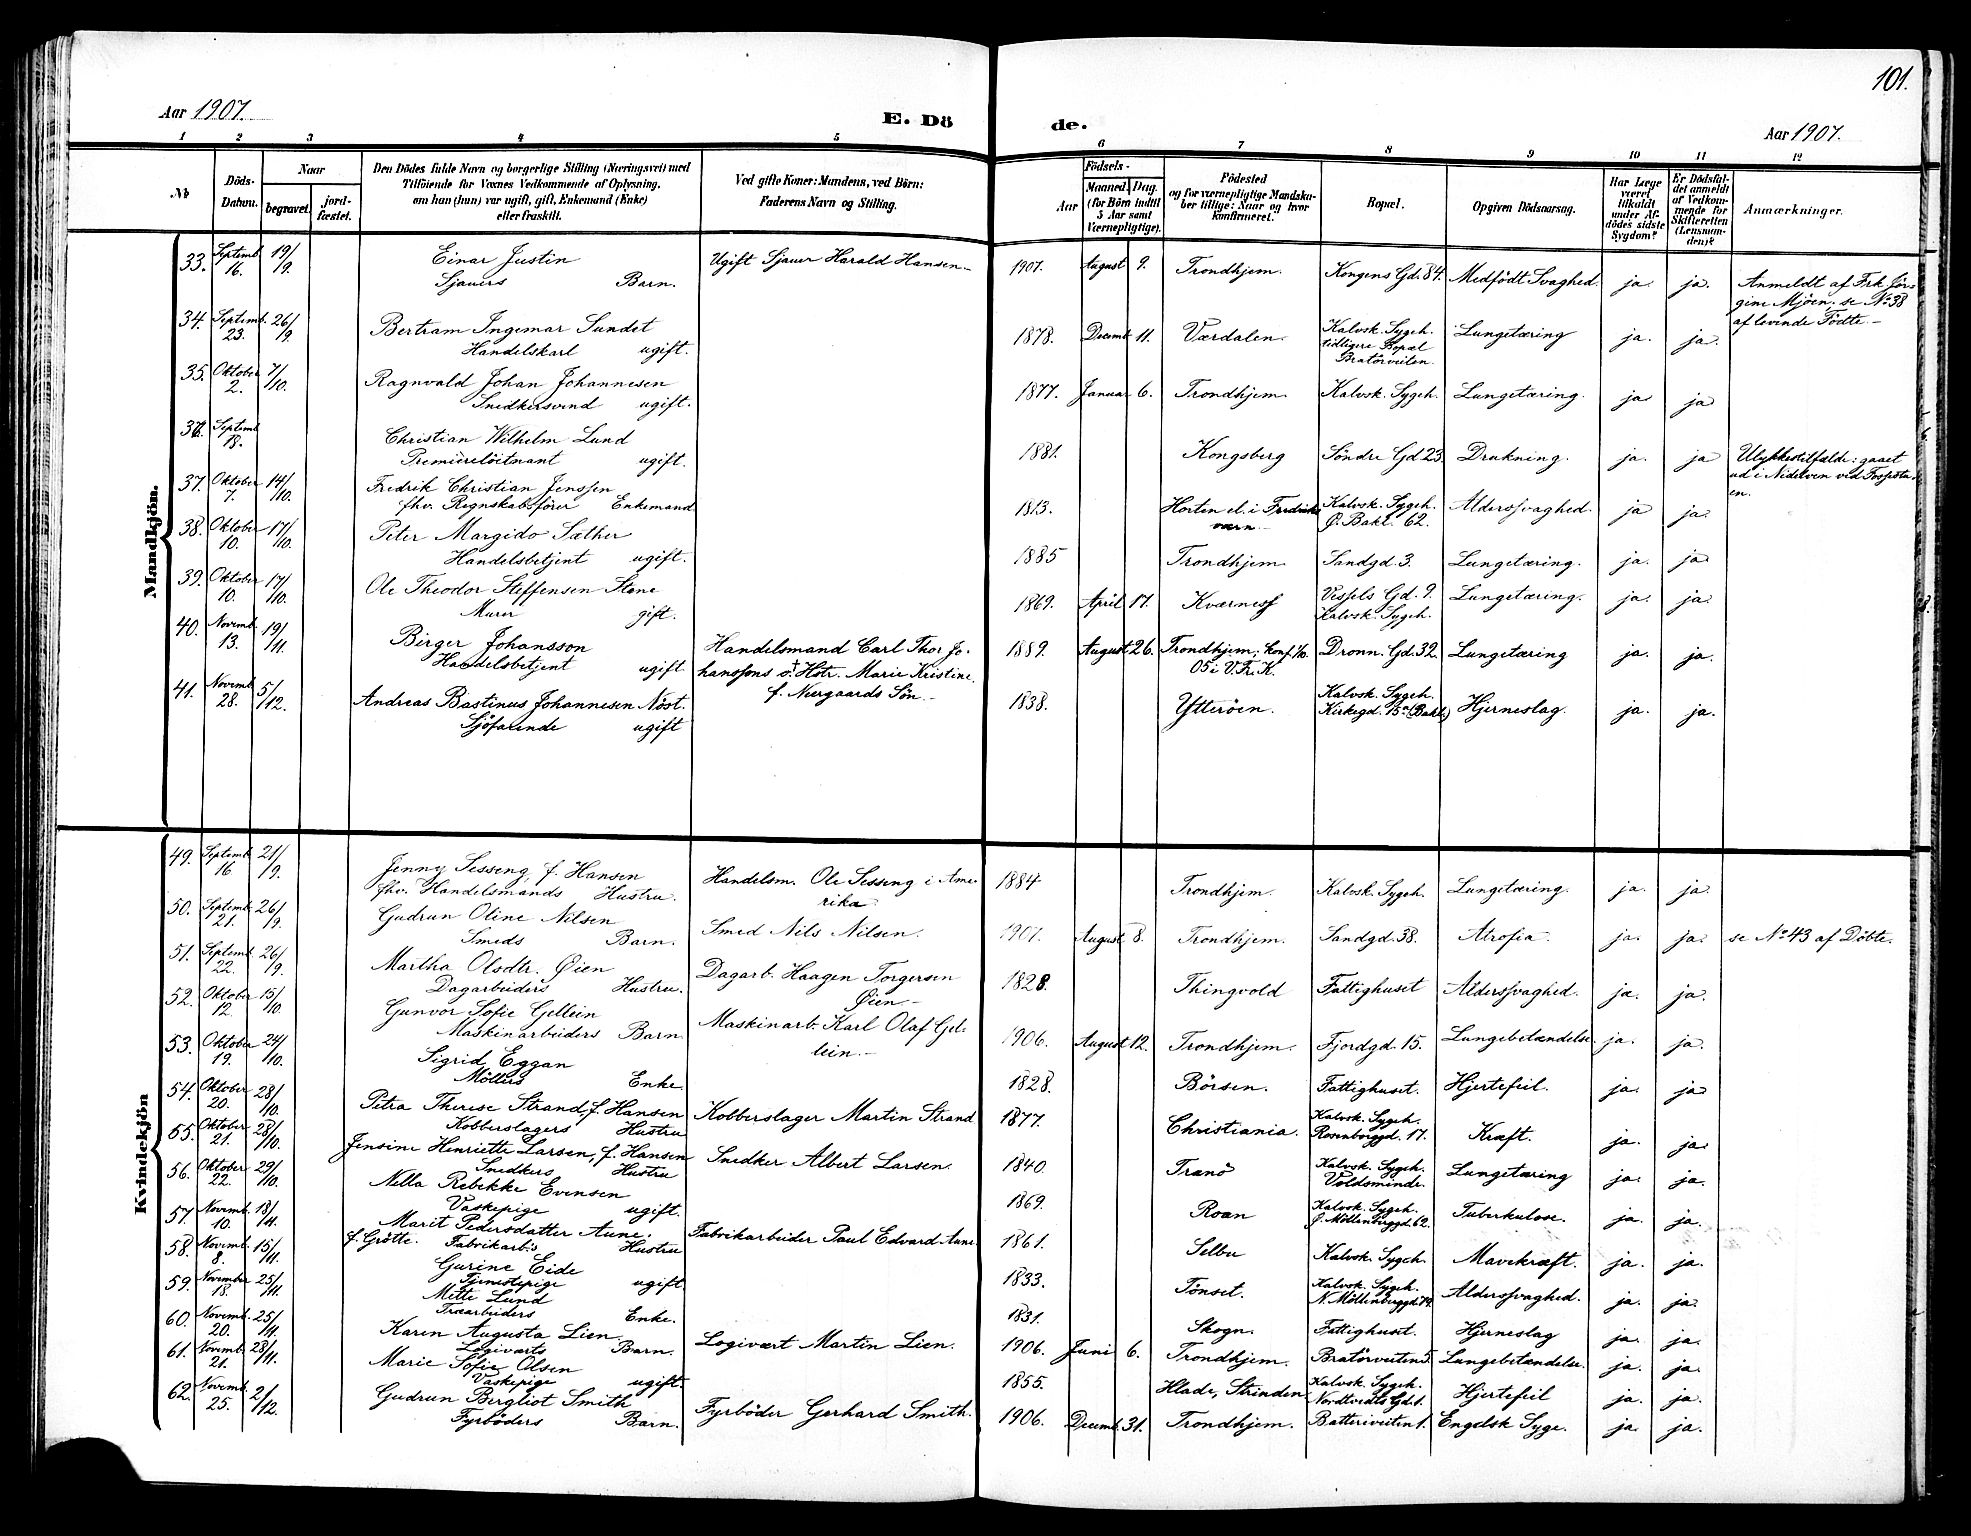 101.
Aar 1907.
E. Döde.
Aar 1907.
1 2 3 4 5 6 7 8 9 10 11 12
No
Döds-Datum.
Naar
begravet.
jordfæstet.
Den Dödes fulde Navn og borgerlige Stilling (Næringsvei) med
Tilföiende for Voxnes Vedkommende af Oplysning,
om han (hun) var ugift, gift, Enkemand (Enke)
eller fraskilt.
Ved gifte Koner: Mandens, ved Börn:
Faderens Navn og Stilling.
Födsels-
Aar
Maaned. Dag.
(for Börn indtil
5 Aar samt
Værnepligtige).
Födested
og for værnepligtige Mandskaber tillige: Naar og hvor
konfirmeret.
Bopæl.
Opgiven Dödsaarsag.
Har Læge
været
tilkaldt
under Afdödes sidste
Sygdom?
Er Dödsfaldet anmeldt
af Vedkommende for
Skifteretten
(Lensmanden)?
Anmærkninger.
Mandkjön.
33. Septemb. 16. 19/9. Einar Justin Sjauers Barn. Ugift Sjauer Harald Hansen 1907. August 9. Trondhjem. Kongens Gd. 84. Medfödt Svaghed. ja. ja. Anmeldt af Frk Jörgine Mjöen, se No 38 af levende Födte.
34. Septemb. 23. 26/9. Bertram Ingemar Sundet Handelskarl ugift. 1878. Decemb. 11. Værdalen. Kalvsk. Sygeh. tidligere Bopæl Bratörveiten. Lungetæring ja. ja.
35. Oktober 2. 7/10. Ragnvald Johan Johannesen Snedkersvend ugift. 1877. Januar 6. Trondhjem Kalvsk. Sygeh. Lungetæring. ja ja
36. Septemb. 18. Christian Wilhelm Lund Premierelöitnant ugift. 1881. Kongsberg Söndre Gd. 23. Drukning. ja. ja Ulykkestilfælde: gaaet ud i Nidelven ved
37. Oktober 7. 14/10. Fredrik Christian Jenssen fhv. Regnskabsförer Enkemand 1813. Horten el. i Fredriksværn. Kalvsk. Sygeh. Ø. Bakl. 62. Alderssvaghed. ja ja.
38. Oktober 10. 17/10. Peter Margido Sæther Handelsbetjent ugift. 1885 Trondhjem Sandgd. 3. Lungetæring. ja. ja.
39. Oktober 10. 17/10. Ole Theodor Steffensen Stene Murer gift. 1869. April 17. Kværness Vessels Gd. 9. Kalvsk. Sygeh. Lungetæring. ja. ja.
40. Novemb. 13. 19/11. Birger Johansson Handelsbetjent ugift Handelsmand Carl Thor Johanssons o. Hstr. Marie Kristine f. Neergaards Sön. 1889. August 26. Trondhjem; Konf. 1/10. 05 i V. Fr. K. Dronn. Gd. 32. Lungetæring ja. ja.
41. Novemb. 28. 5/12. Andreas Bastinus Johannesen Nöst. Sjöfarende ugift 1838. Ytteröen. Kalvsk. Sygeh. Kirkegd. 15a (Bakl.) Hjerneslag. ja. ja.
Kvindekjön
49. Septemb. 16 21/9. Jenny Sesseng, f. Hansen fhv. Handelsmands Hustru. Handelsm. Ole Sesseng i Amerika 1884 Trondhjem. Kalvsk. Sygeh. Lungetæring. ja. ja
50. Septemb. 21. 26/9. Gudrun Oline Nilsen Smeds Barn. Smed Nils Nilsen. 1907. August 8. Trondhjem. Sandgd. 38. Atrofia. ja. ja. se No. 43 af Döbte.
51. Septemb. 22. 26/9. Martha Olsdtr. Øien Dagarbeiders Hustru. Dagarb. Haagen Torgersen Øien 1828. Thingvold Fattighuset Alderssvaghed. ja. ja.
52. Oktober 12. 15/10. Gunvor Sofie Gellein Maskinarbeiders Barn. Maskinarb. Karl Olaf Gellein. 1906. August 12. Trondhjem. Fjordgd. 15. Lungebetændelse. ja. ja.
53. Oktober 19. 24/10. Sigrid Eggan Möllers Enke 1828. Börsen. Fattighuset. Hjertefeil. ja. ja
54. Oktober 20. 28/10. Petra Therese Strand, f. Hansen Kobberslagers Hustru Kobberslager Martin Strand 1877. Christiania. Kalvsk. Sygeh. Rosenborggd. 17. Kræft. ja. ja
55. Oktober 21. 28/10. Jensine Henriette Larsen, f. Hansen Snedkers Hustru Snedker Albert Larsen. 1840. Tranö Kalvsk. Sygeh. Voldsminde. Lungetæring ja. ja.
56. Oktober 22. 29/10. Nella Rebekke Evensen Vaskepige ugift. 1869. Roan Kalvsk. Sygeh. Ø. Möllenberggd. 62. Tuberkulose. ja. ja.
57. Novemb. 10. 18/11. Marit Pedersdatter Aune. f. Grötte. Fabrikarb.s Hustru Fabrikarbeider Paul Edvard Aune. 1861. Selbu Kalvsk. Sygeh. Mavekræft. ja. ja.
58. Novemb. 8. 15/11. Gurine Eide Tjenestepige ugift 1833. Tönset. Kalvsk. Sygeh. N. Möllenberggd. 79. Alderssvaghed. ja. ja.
59. November 18. 25/11. Mette Lund Træarbeiders Enke. 1831. Skogn. Fattighuset. Hjerneslag ja. ja.
60. Novemb. 20. 25/11. Karen Augusta Lien Logiværts Barn. Logivært Martin Lien. 1906. Juni 6. Trondhjem. Bratörveiten 5. Lungebetændelse. ja. ja.
61. Novemb. 21. 28/11. Marie Sofie Olsen Vaskepige ugift. 1855. Hlade, Strinden Kalvsk. Sygeh. Nordtvedts Gd. 1. Hjertefeil ja. ja.
62. Novemb. 25. 2/12. Gudrun Bergliot Smith Fyrböders Barn. Fyrböder Gerhard Smith. 1906. Decemb. 31. Trondhjem. Batteriveiten 1. Engelsk Syge. ja. ja.